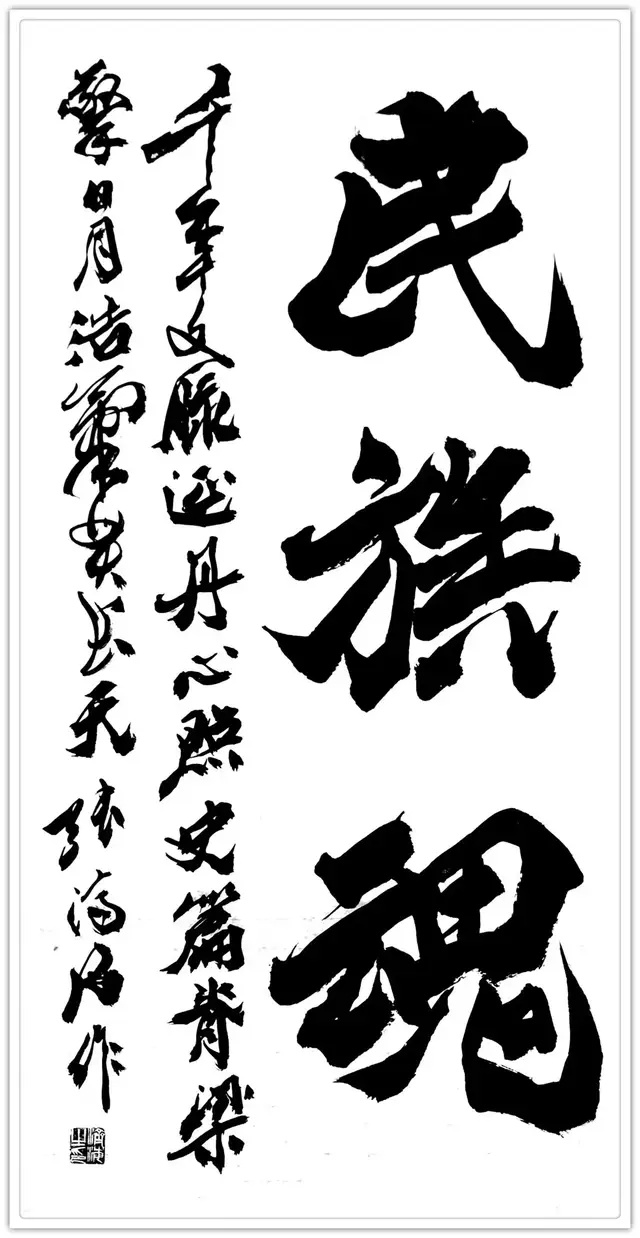 民族魂
千年文脉延丹心照史篇脊梁
擎日月浩气贯长天 张济海作